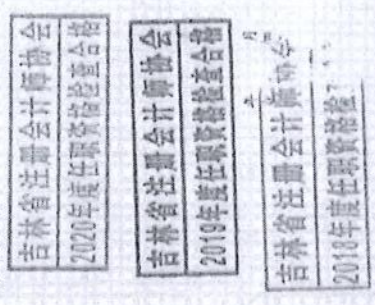 吉林省注册会计师协会
2020年度任职资格检查合格
吉林省注册会计师协会
2019年度任职资格检查合格
吉林省注册会计师协会
2018年度任职资格检
月